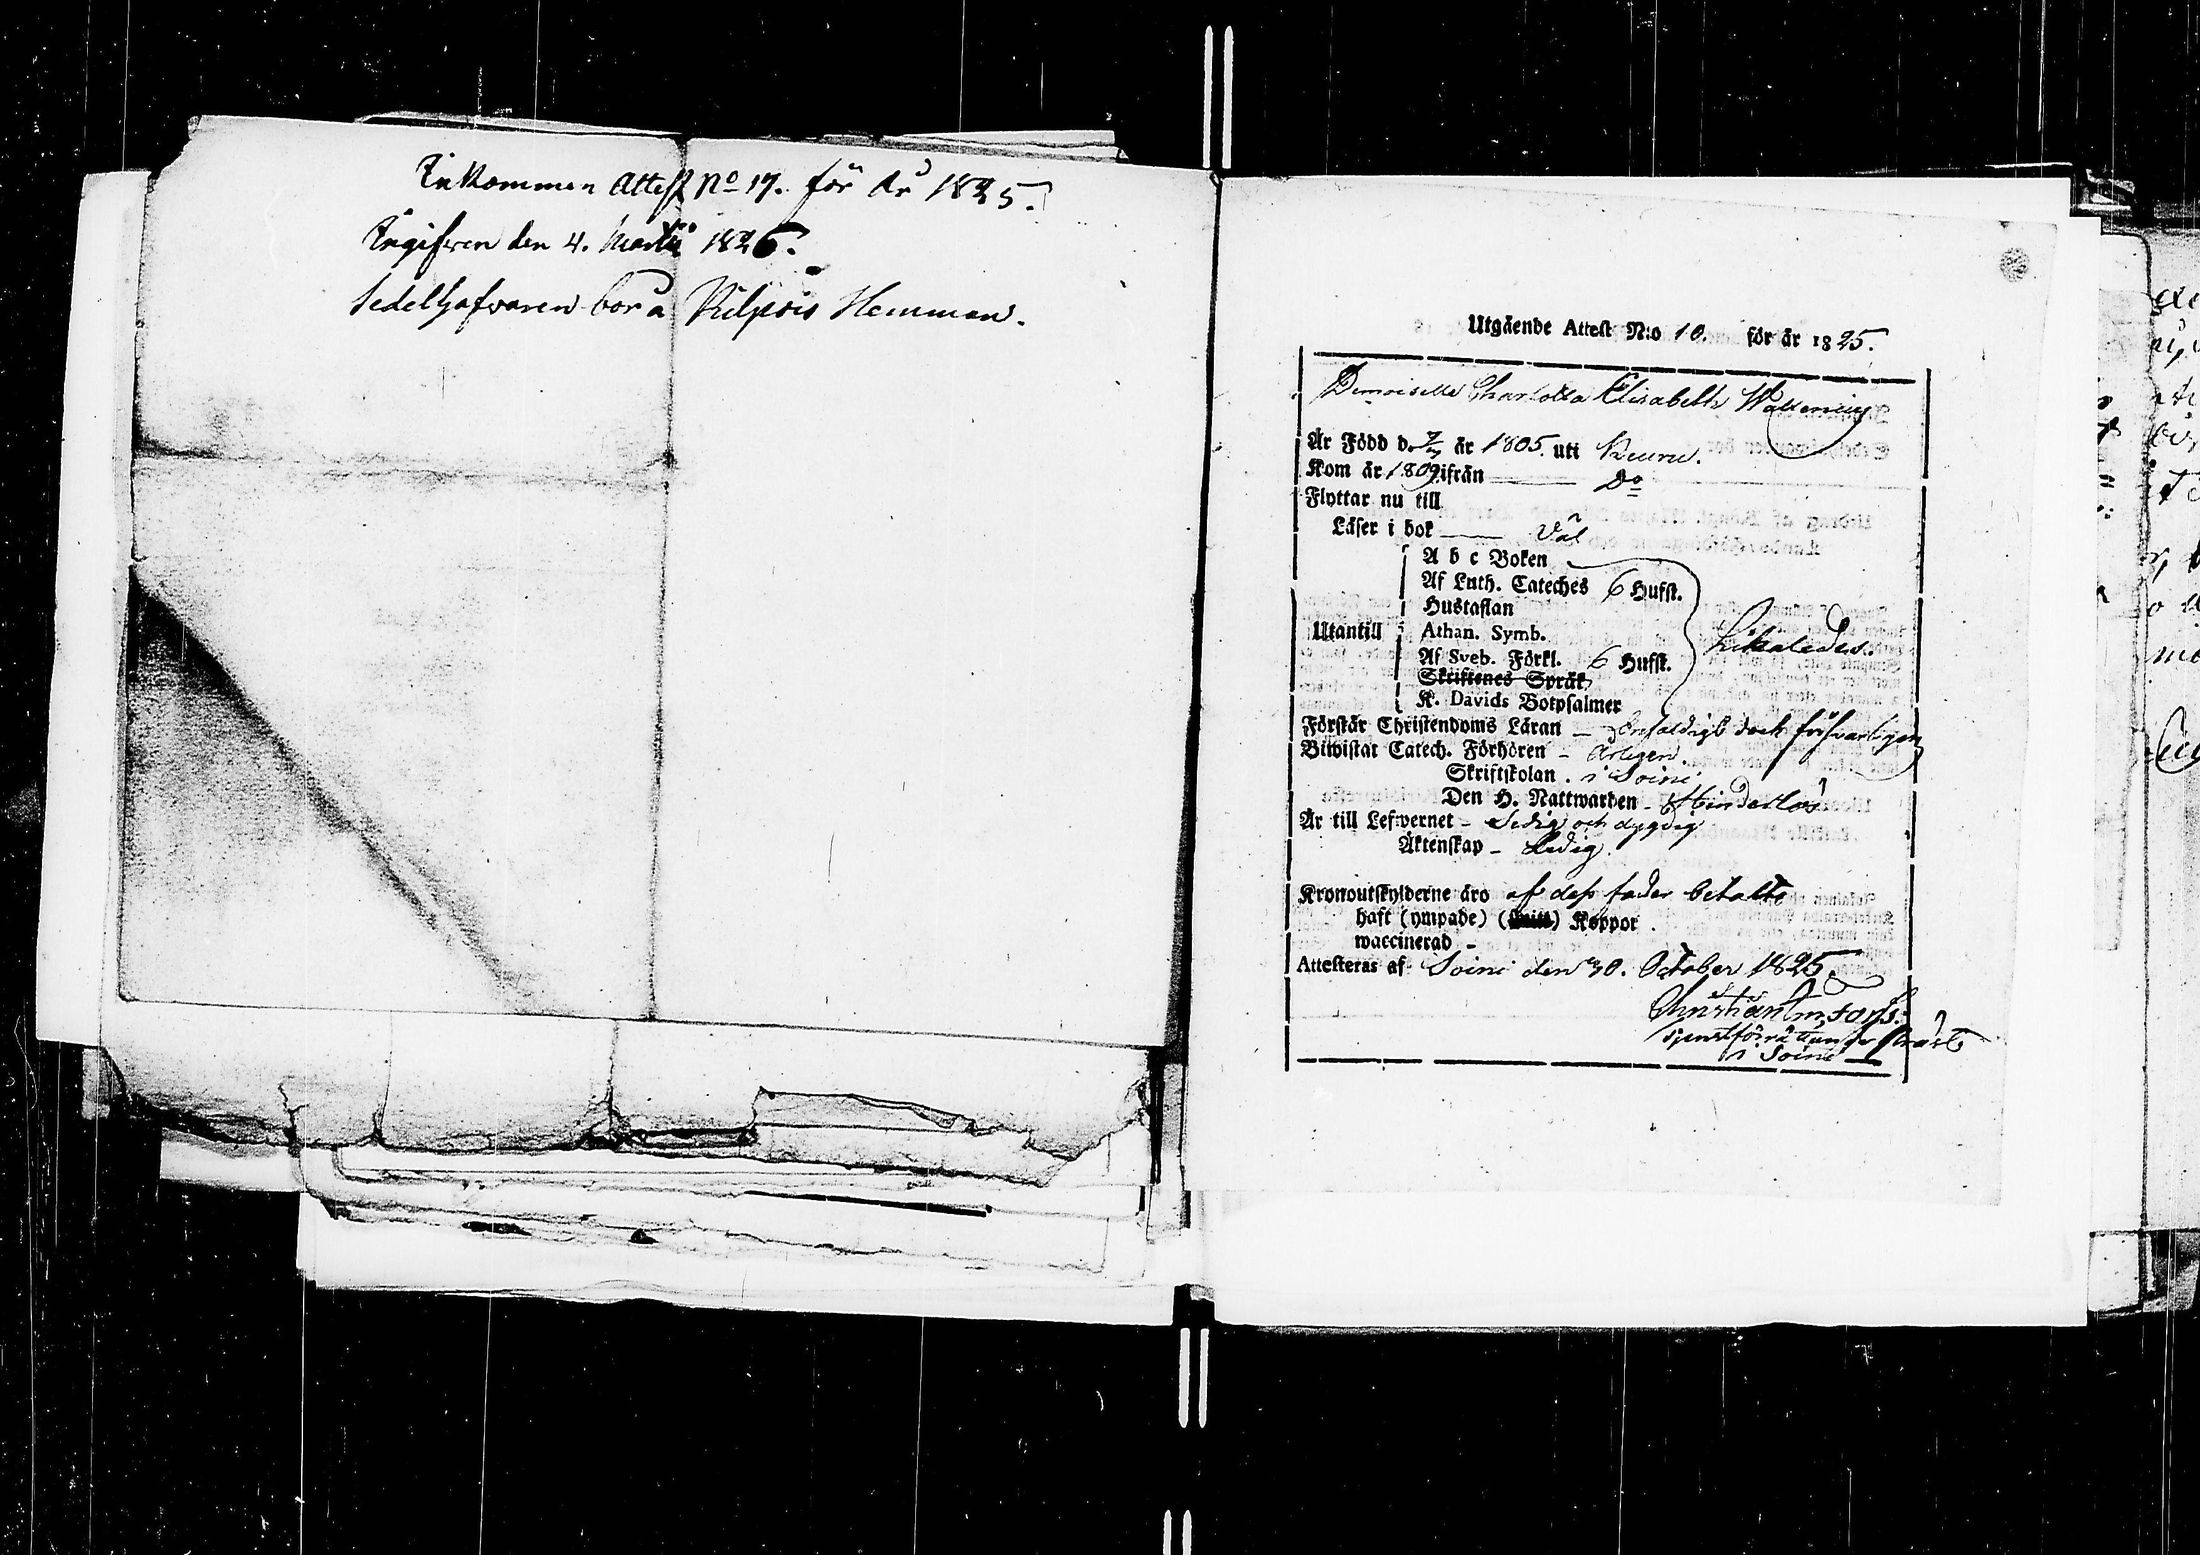 Inkommen Attest No 17. för År 1825.
Ingifven den 4. Martii 1826.
Sedelhafvaren bor å Kilpois Hemman.
Utgående Attest N:o 10. för år 1825.
Demoiselle Charlotta Elisabeth Wallenius
Är Född d. 7/7 år 1805. uti Keuru.
Kom år 1809 ifrån Do
Flyttar nu till
Läser i bok Väl
A b c Boken
Af Luth. Cateches 6 Hufst.
Hustaflan
Utantill Athan. Symb. Likaledes.
Af Sveb. Förkl. 6 Hufst.
Skriftenes Språk
K. Davids Botpsalmer
Förstår Christendoms Läran - Enfaldigt dock försvarligen
Biwistat Catech. Förhören - Årligen.
Skriftskolan. i Soini
Den H. Nattwarden - Hinderlös
Är till Lefwernet - Sedig och dygdig
Äktenskap - Ledig.
Kronoutskylderne äro af dess fader betalte
haft (ympade) Koppor.
waccinerad -
Attesteras af Soini den 30. October 1825.
Christian
i Soini